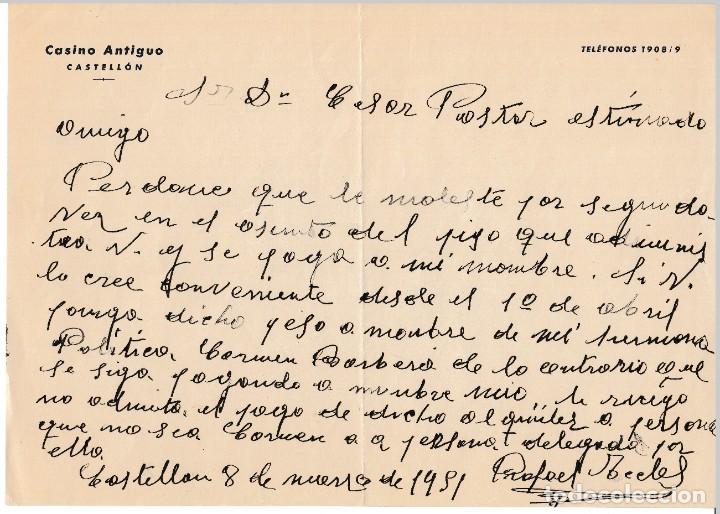 Casino Antiguo
CASTELLÓN
TELÉFONOS 1908/9
Sr Dn Cesar Pastor estimado
amigo
Perdone que le moleste por segunda
vez en el asunto del piso que adminis
tra V. y se paga a mi nombre. Si V.
lo cree conveniente desde el 1º de abril
ponga dicho a nombre de mi hermana
Política Carmen Barberá de lo contrario que
se siga pagando a nombre mio, le ruego
no admita el pago de dicho alquiler a persona
que no sea Carmen o a persona delegada por
ella.
Castellon 8 de marzo de 1951 Rafael
todocoleccion